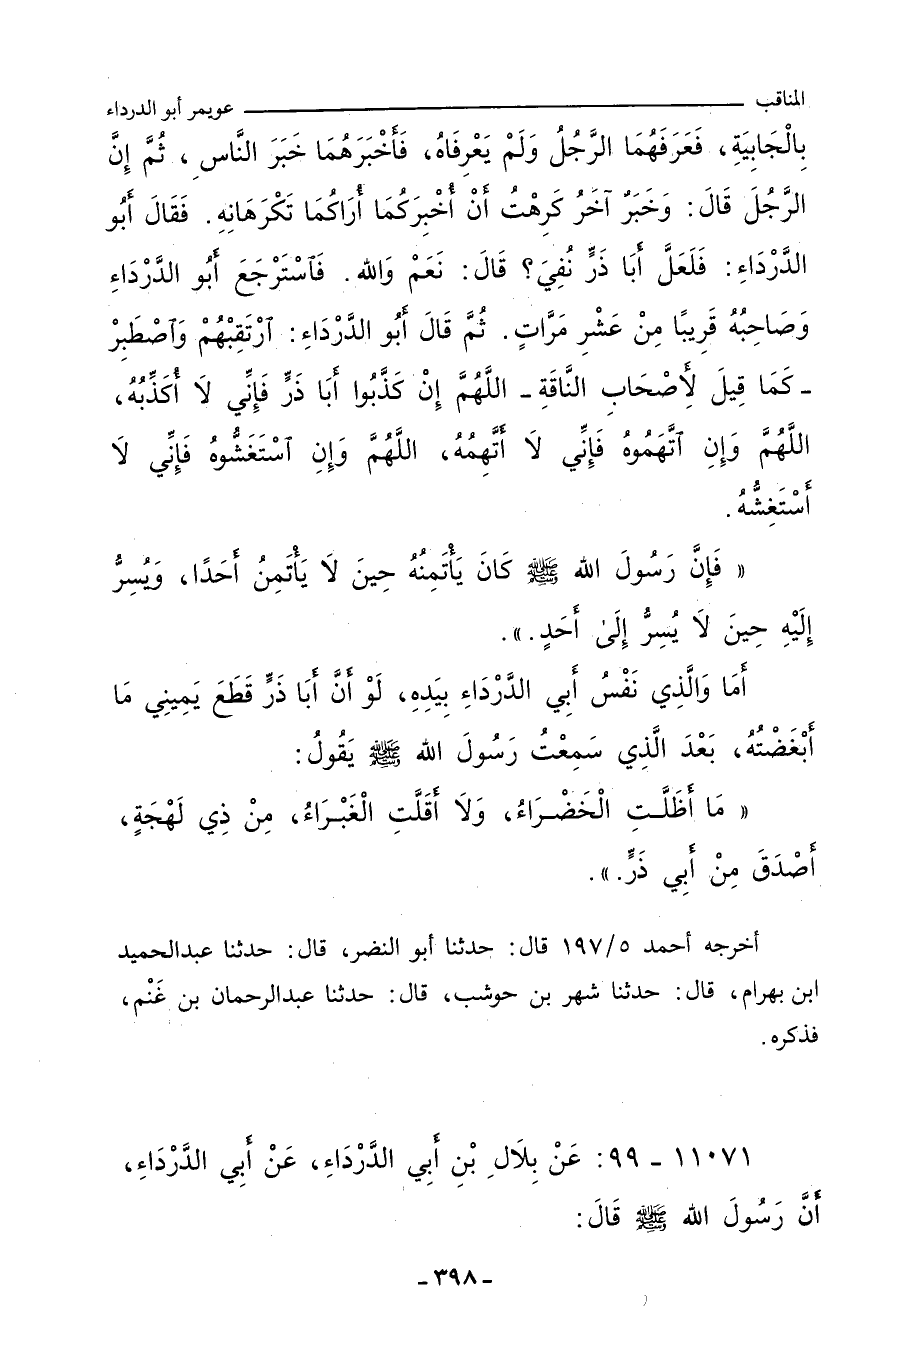 المناقب ــــــــــ عويمر أبو الدرداء
بِالْجَابِيَةِ، فَعَرَفَهُمَا الرَّجُلُ وَلَمْ يَعْرِفَاهُ، فَأَخْبَرَهُمَا خَبَرَ النَّاسِ، ثُمَّ إِنَّ
الرَّجُلَ قَالَ: وَخَبَرٌ آخَرُ كَرِهْتُ أَنْ أُخْبِرَكُمَا أُرَاكُمَا تَكْرَهَانِهِ. فَقَالَ أَبُو
الدَّرْدَاءِ: فَلَعَلَّ أَبَا ذَرٍّ نُفِيَ؟ قَالَ: نَعَمْ وَالله. فَٱسْتَرْجَعَ أَبُو الدَّرْدَاءِ
وَصَاحِبُهُ قَرِيبًا مِنْ عَشْرِ مَرَّاتٍ. ثُمَّ قَالَ أَبُو الدَّرْدَاءِ: ٱرْتَقِبْهُمْ وَٱصْطَبِرْ
ـ كَمَا قِيلَ لِأَصْحَابِ النَّاقَةِ ـ اللَّهُمَّ إِنْ كَذَّبُوا أَبَا ذَرٍّ فَإِنِّي لَا أُكَذِّبُهُ،
اللَّهُمَّ وَإِنِ ٱتَّهَمُوهُ فَإِنِّي لَا أَتَّهِمُهُ، اللَّهُمَّ وَإِنِ ٱسْتَغَشُّوهُ فَإِنِّي لَا
أَسْتَغِشُّهُ.
« فَإِنَّ رَسُولَ الله ﷺ كَانَ يَأْتَمِنُهُ حِينَ لَا يَأْتَمِنُ أَحَدًا، وَيُسِرُّ
إِلَيْهِ حِينَ لَا يُسِرُّ إِلَىٰ أَحَدٍ.».
أَمَا وَالَّذِي نَفْسُ أَبِي الدَّرْدَاءِ بِيَدِهِ، لَوْ أَنَّ أَبَا ذَرٍّ قَطَعَ يَمِينِي مَا
أَبْغَضْتُهُ، بَعْدَ الَّذِي سَمِعْتُ رَسُولَ الله ﷺ يَقُولُ:
« مَا أَظَلَّتِ الْخَضْرَاءُ، وَلَا أَقَلَّتِ الْغَبْرَاءُ، مِنْ ذِي لَهْجَةٍ،
أَصْدَقَ مِنْ أَبِي ذَرٍّ.».
أخرجه أحمد ١٩٧/٥ قال: حدثنا أبو النضر، قال: حدثنا عبدالحميد
ابن بهرام، قال: حدثنا شهر بن حوشب، قال: حدثنا عبدالرحمان بن غَنْم،
فذكره.
١١٠٧١ ـ ٩٩: عَنْ بِلَالِ بْنِ أَبِي الدَّرْدَاءِ، عَنْ أَبِي الدَّرْدَاءِ،
أَنَّ رَسُولَ الله ﷺ قَالَ:
ـ ٣٩٨ ـ